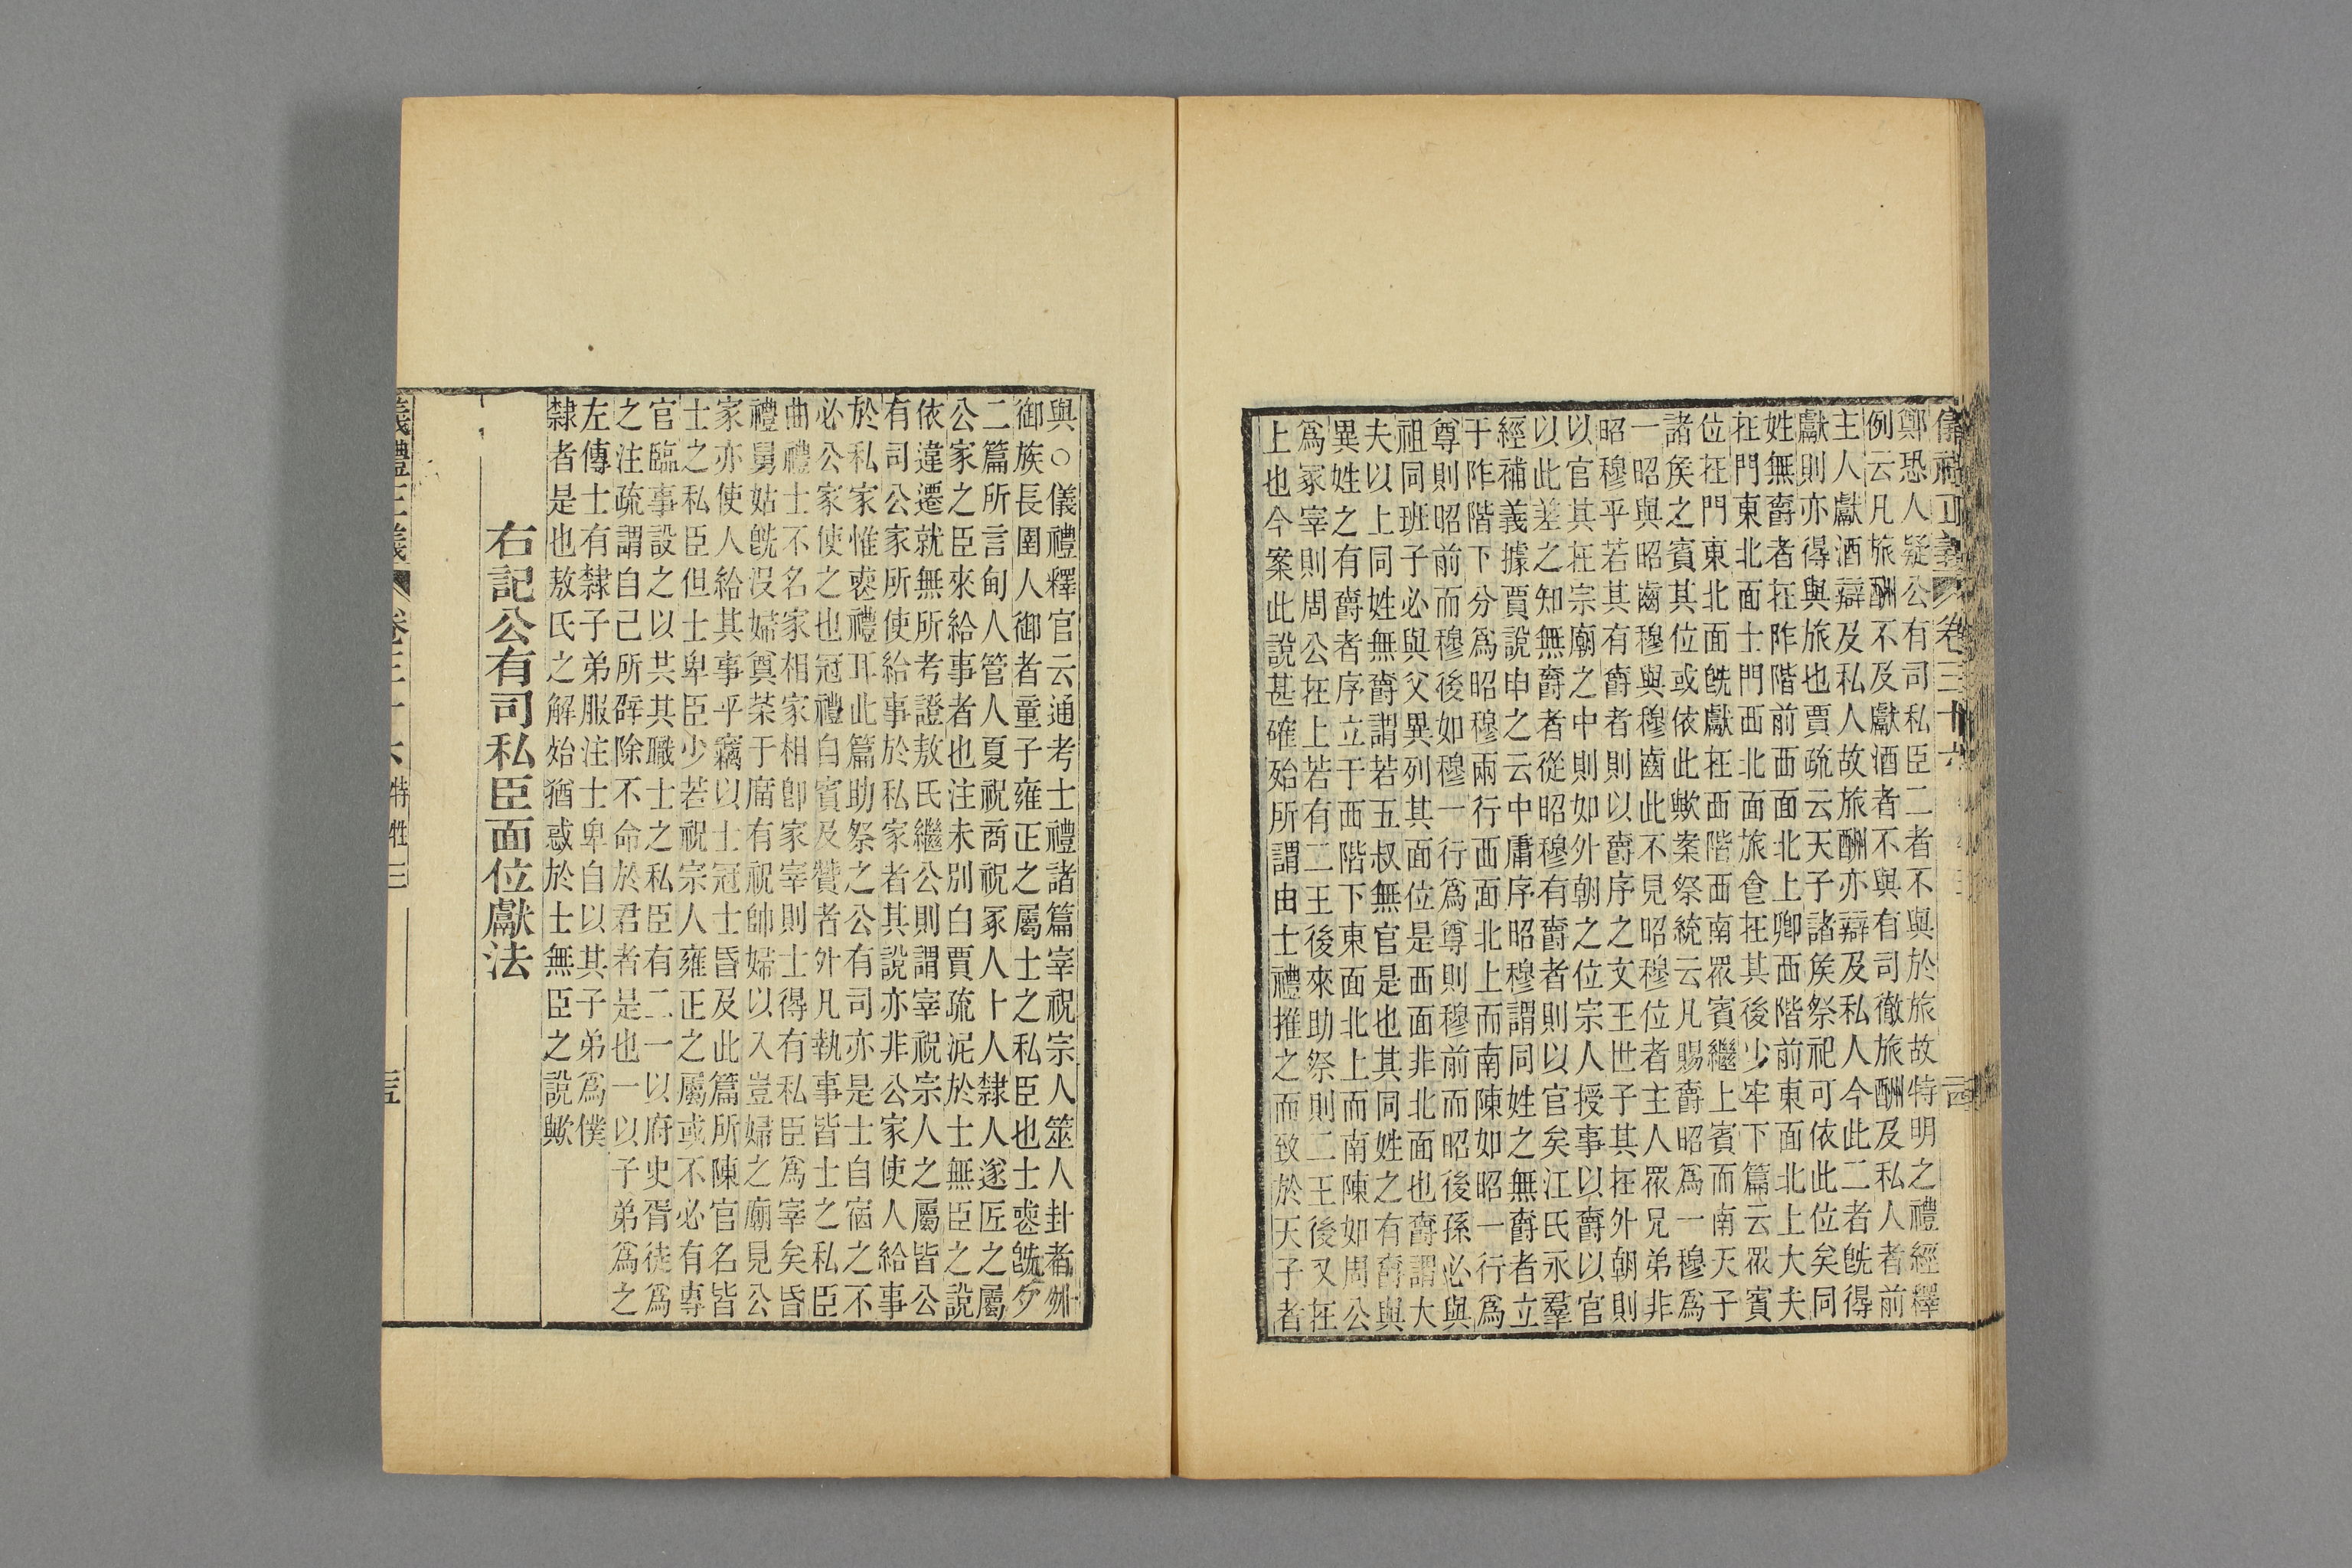 儀禮正義 卷三十六
鄭恐人疑公有司私臣二者不與於旅故特明之禮經釋
例云凡旅酬不及獻酒者不與有司徹旅酬及私人者前
主人獻酒辯及私人故旅酬亦辯及私人今此二者旣得
獻則亦得與旅也賈疏云天子諸侯祭祀可依此位矣同
姓無爵者在阼階前西面北上卿西階前東面北上大夫
在門東北面士門西北面旅食在其後少牢下篇云眾賓
位在門東北面旣獻在西階西南眾賓繼上賓而南天子
諸侯之賓其位或依此歟案祭統云凡賜爵昭爲一穆爲
一昭與昭齒穆與穆齒此不見昭穆位者主人眾兄弟非
昭穆乎若其有爵者則以爵序之文王世子其在外朝則
以官其在宗廟之中則如外朝之位宗人授事以爵以官
以此差之知無爵者從昭穆有爵者則以官矣江氏永羣
經補義據賈說申之云中庸序昭穆謂同姓之無爵者立
于阼階下分爲昭穆兩行西面北上而南陳如昭一行爲
尊則昭前而穆後如穆一行爲尊則穆前而昭後孫必與
祖同班子必與父異列其面位是西面非北面也爵謂大
夫以上同姓無爵謂若五叔無官是也其同姓之有爵與
異姓之有爵者序立于西階下東面北上而南陳如周公
爲冢宰則周公在上若有二王後來助祭則二王後又在
上也今案此說甚確殆所謂由士禮推之而致於天子者
與○儀禮釋官云通考士禮諸篇宰祝宗人筮人卦者外
御族長圉人御者童子雍正之屬士之私臣也士喪旣夕
二篇所言甸人管人夏祝商祝冢人卜人隸人遂匠之屬
公家之臣來給事者也注未別白賈疏泥於士無臣之說
依違遷就無所考證敖氏繼公則謂宰祝宗人之屬皆公
有司公家所使給事於私家者其說亦非公家使人給事
於私家惟喪禮耳此篇助祭之公有司亦是士自宿之不
必公家使之也冠禮自賓及贊者外凡執事皆士之私臣
曲禮士不名家相家相卽家宰則士得有私臣爲宰矣昏
禮舅姑旣沒婦奠菜于席有祝帥婦以入豈婦之廟見公
家亦使人給其事乎竊以士冠士昏及此篇所陳官名皆
士之私臣但士卑臣少若祝宗人雍正之屬或不必有專
官臨事設之以共其職士之私臣有二一以府史胥徒爲
之注疏謂自己所辟除不命於君者是也一以子弟爲之
左傳士有隸子弟服注士卑自以其子弟爲僕
隸者是也敖氏之解殆猶惑於士無臣之說歟
右記公有司私臣面位獻法
儀禮正義 卷三十六 特牲三